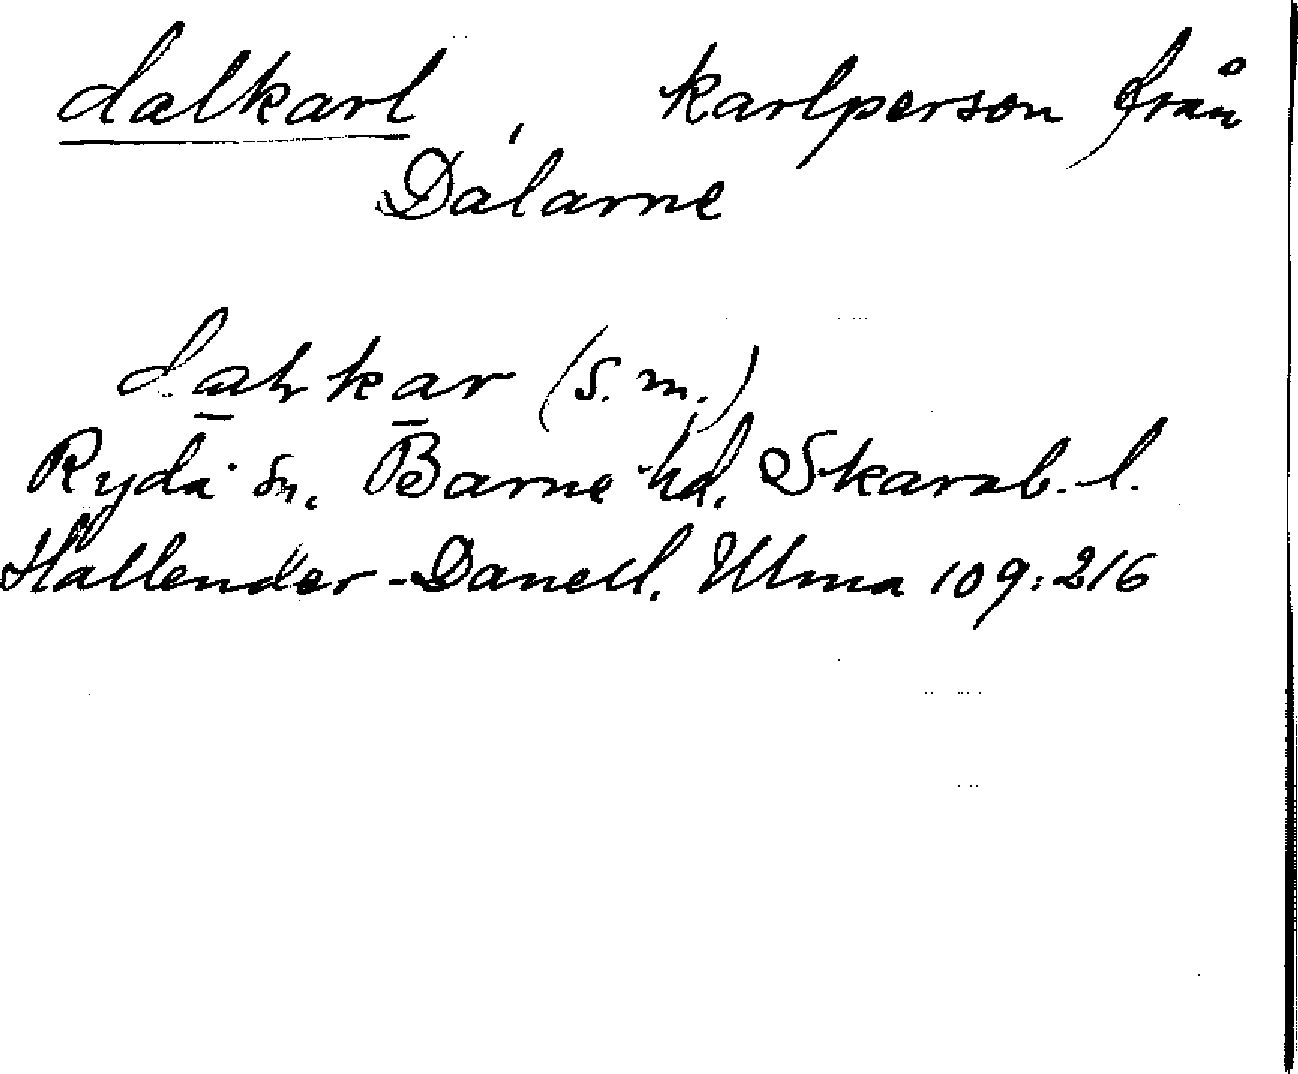 dalkarl, karlperson från
Dalarne
dalkar (s. m.)
Ryda sn. Barne hd. Skarab. l.
Hallender-Danell. Ulma 109:216